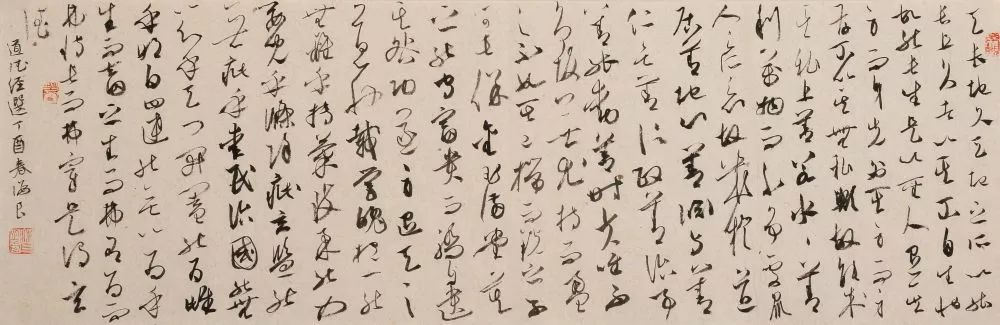 天長地久天地之所以能
長且久者以其不自生也
故能長生是以聖人後其
身而身先外其身而身
存不以其無私歟故能成
其私上善若水水善
利萬物而不爭處眾
人之所惡故幾於道
居善地心善淵與善
仁言善信政善治事
善能動善時夫唯不
爭故無尤持而盈
之不如其已揣而銳之不
可長保金玉滿堂莫
之能守富貴而驕自遺
其咎功遂身退天之
道載營魄抱一能
無離乎專氣致柔能如
嬰兒乎滌除玄覽能
無疵乎愛民治國能無
為乎天門開闔能為雌
乎明白四達能無知乎
生之畜之生而不有為而
不恃長而不宰是謂玄
德
道德經選丁酉春海良